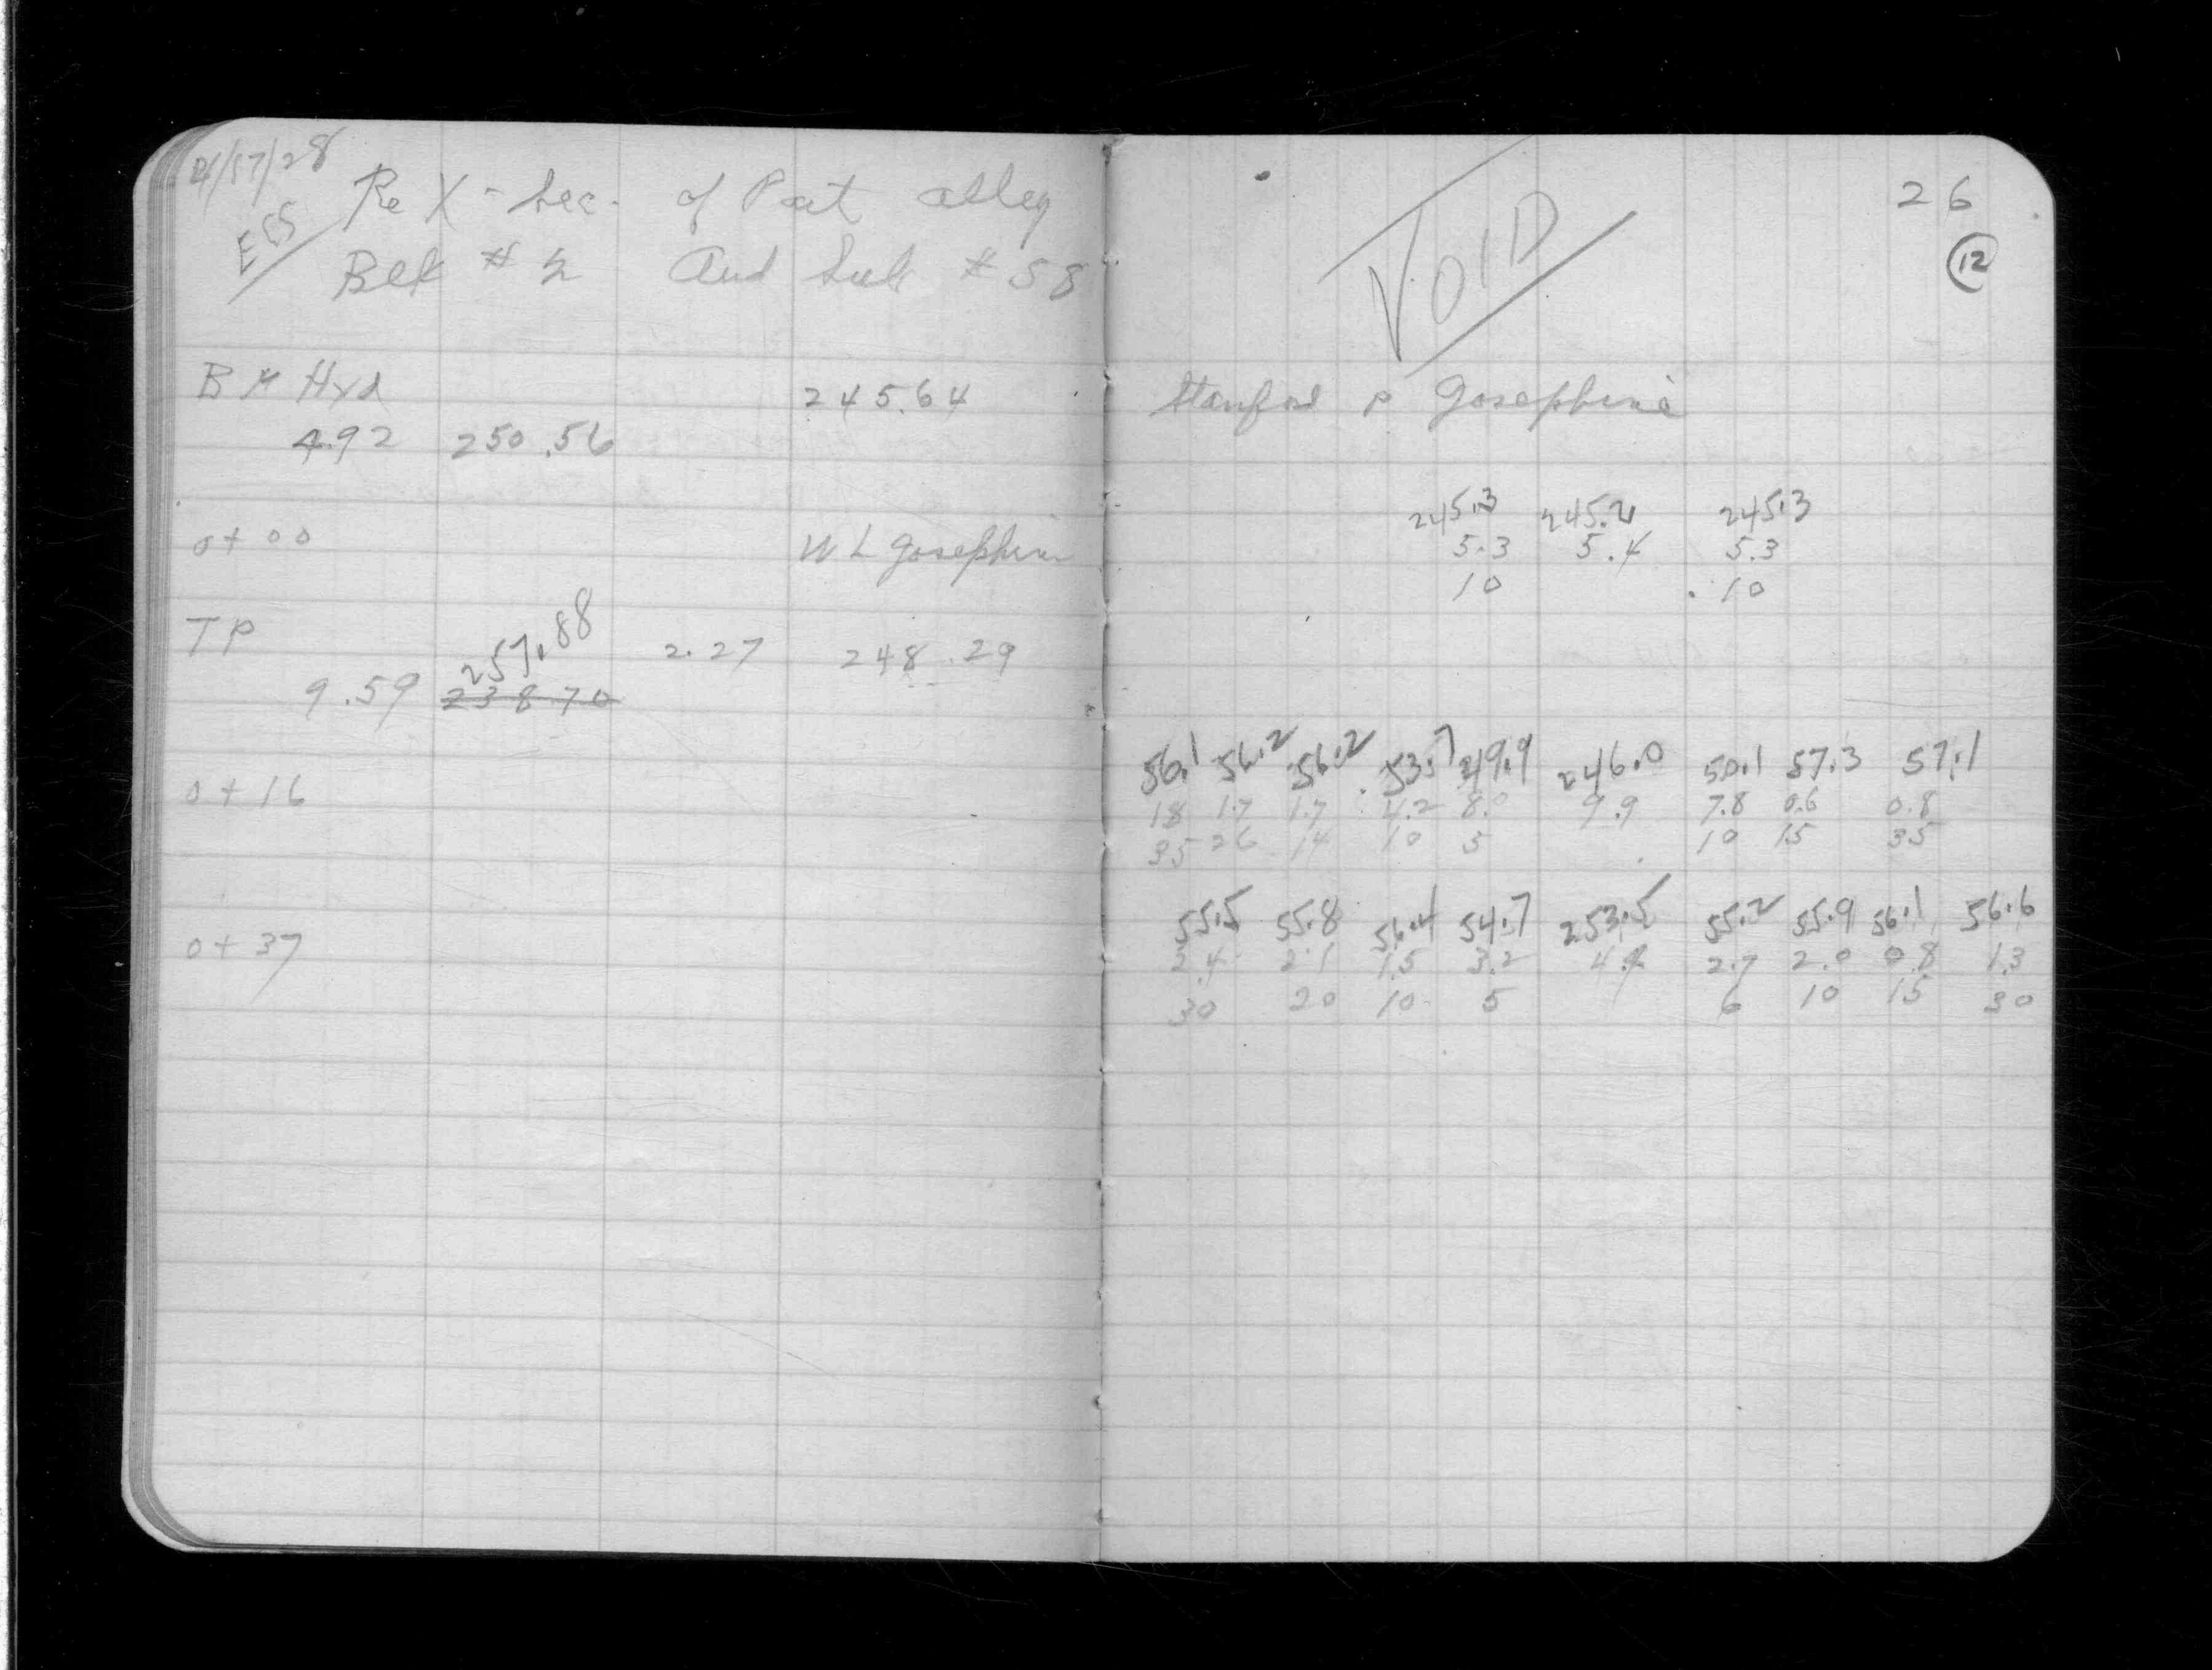 4/17/28
ECS
Re X-Sec. of Part alley
Blk # 2 And Sub # 58
B M Hyd 245.64
4.92 250.56
0+00 W L Josephine
TP 257.88 2.27 248.29
9.59 23870
0+16
0+37
VOID
26
12
Stanford P Josephine
245.3 245.2 245.3
5.3 5.4 5.3
10 10
56.1 56.2 56.2 53.7 249.9 246.0 50.1 57.3 57.1
18 1.7 1.7 4.2 8.0 9.9 7.8 0.6 0.8
35 26 14 10 5 10 15 35
55.5 55.8 56.4 54.7 253.5 55.2 55.9 56.1 56.6
2.4 2.1 1.5 3.2 4.4 2.7 2.0 0.8 1.3
30 20 10 5 6 10 15 30